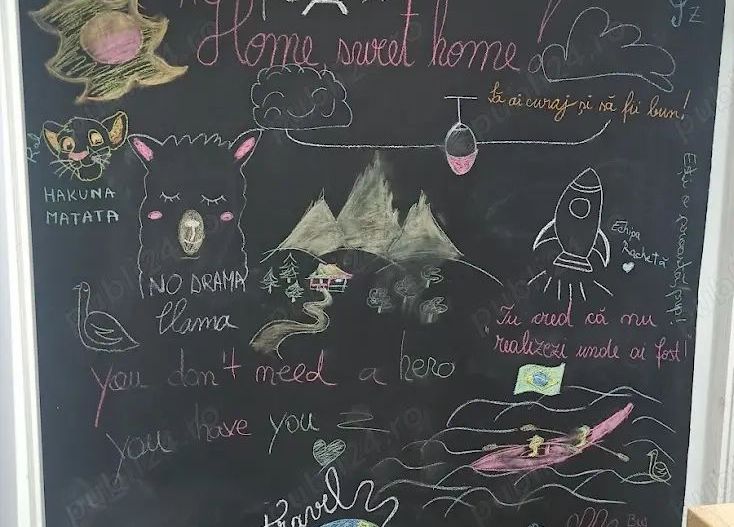 Home sweet home
Să ai curaj și să fii bun!
HAKUNA
MATATA
Echipa
Rachetă
NO DRAMA
llama
"Tu cred că nu
realizezi unde ai fost!
you don't need a hero
you have you
travel